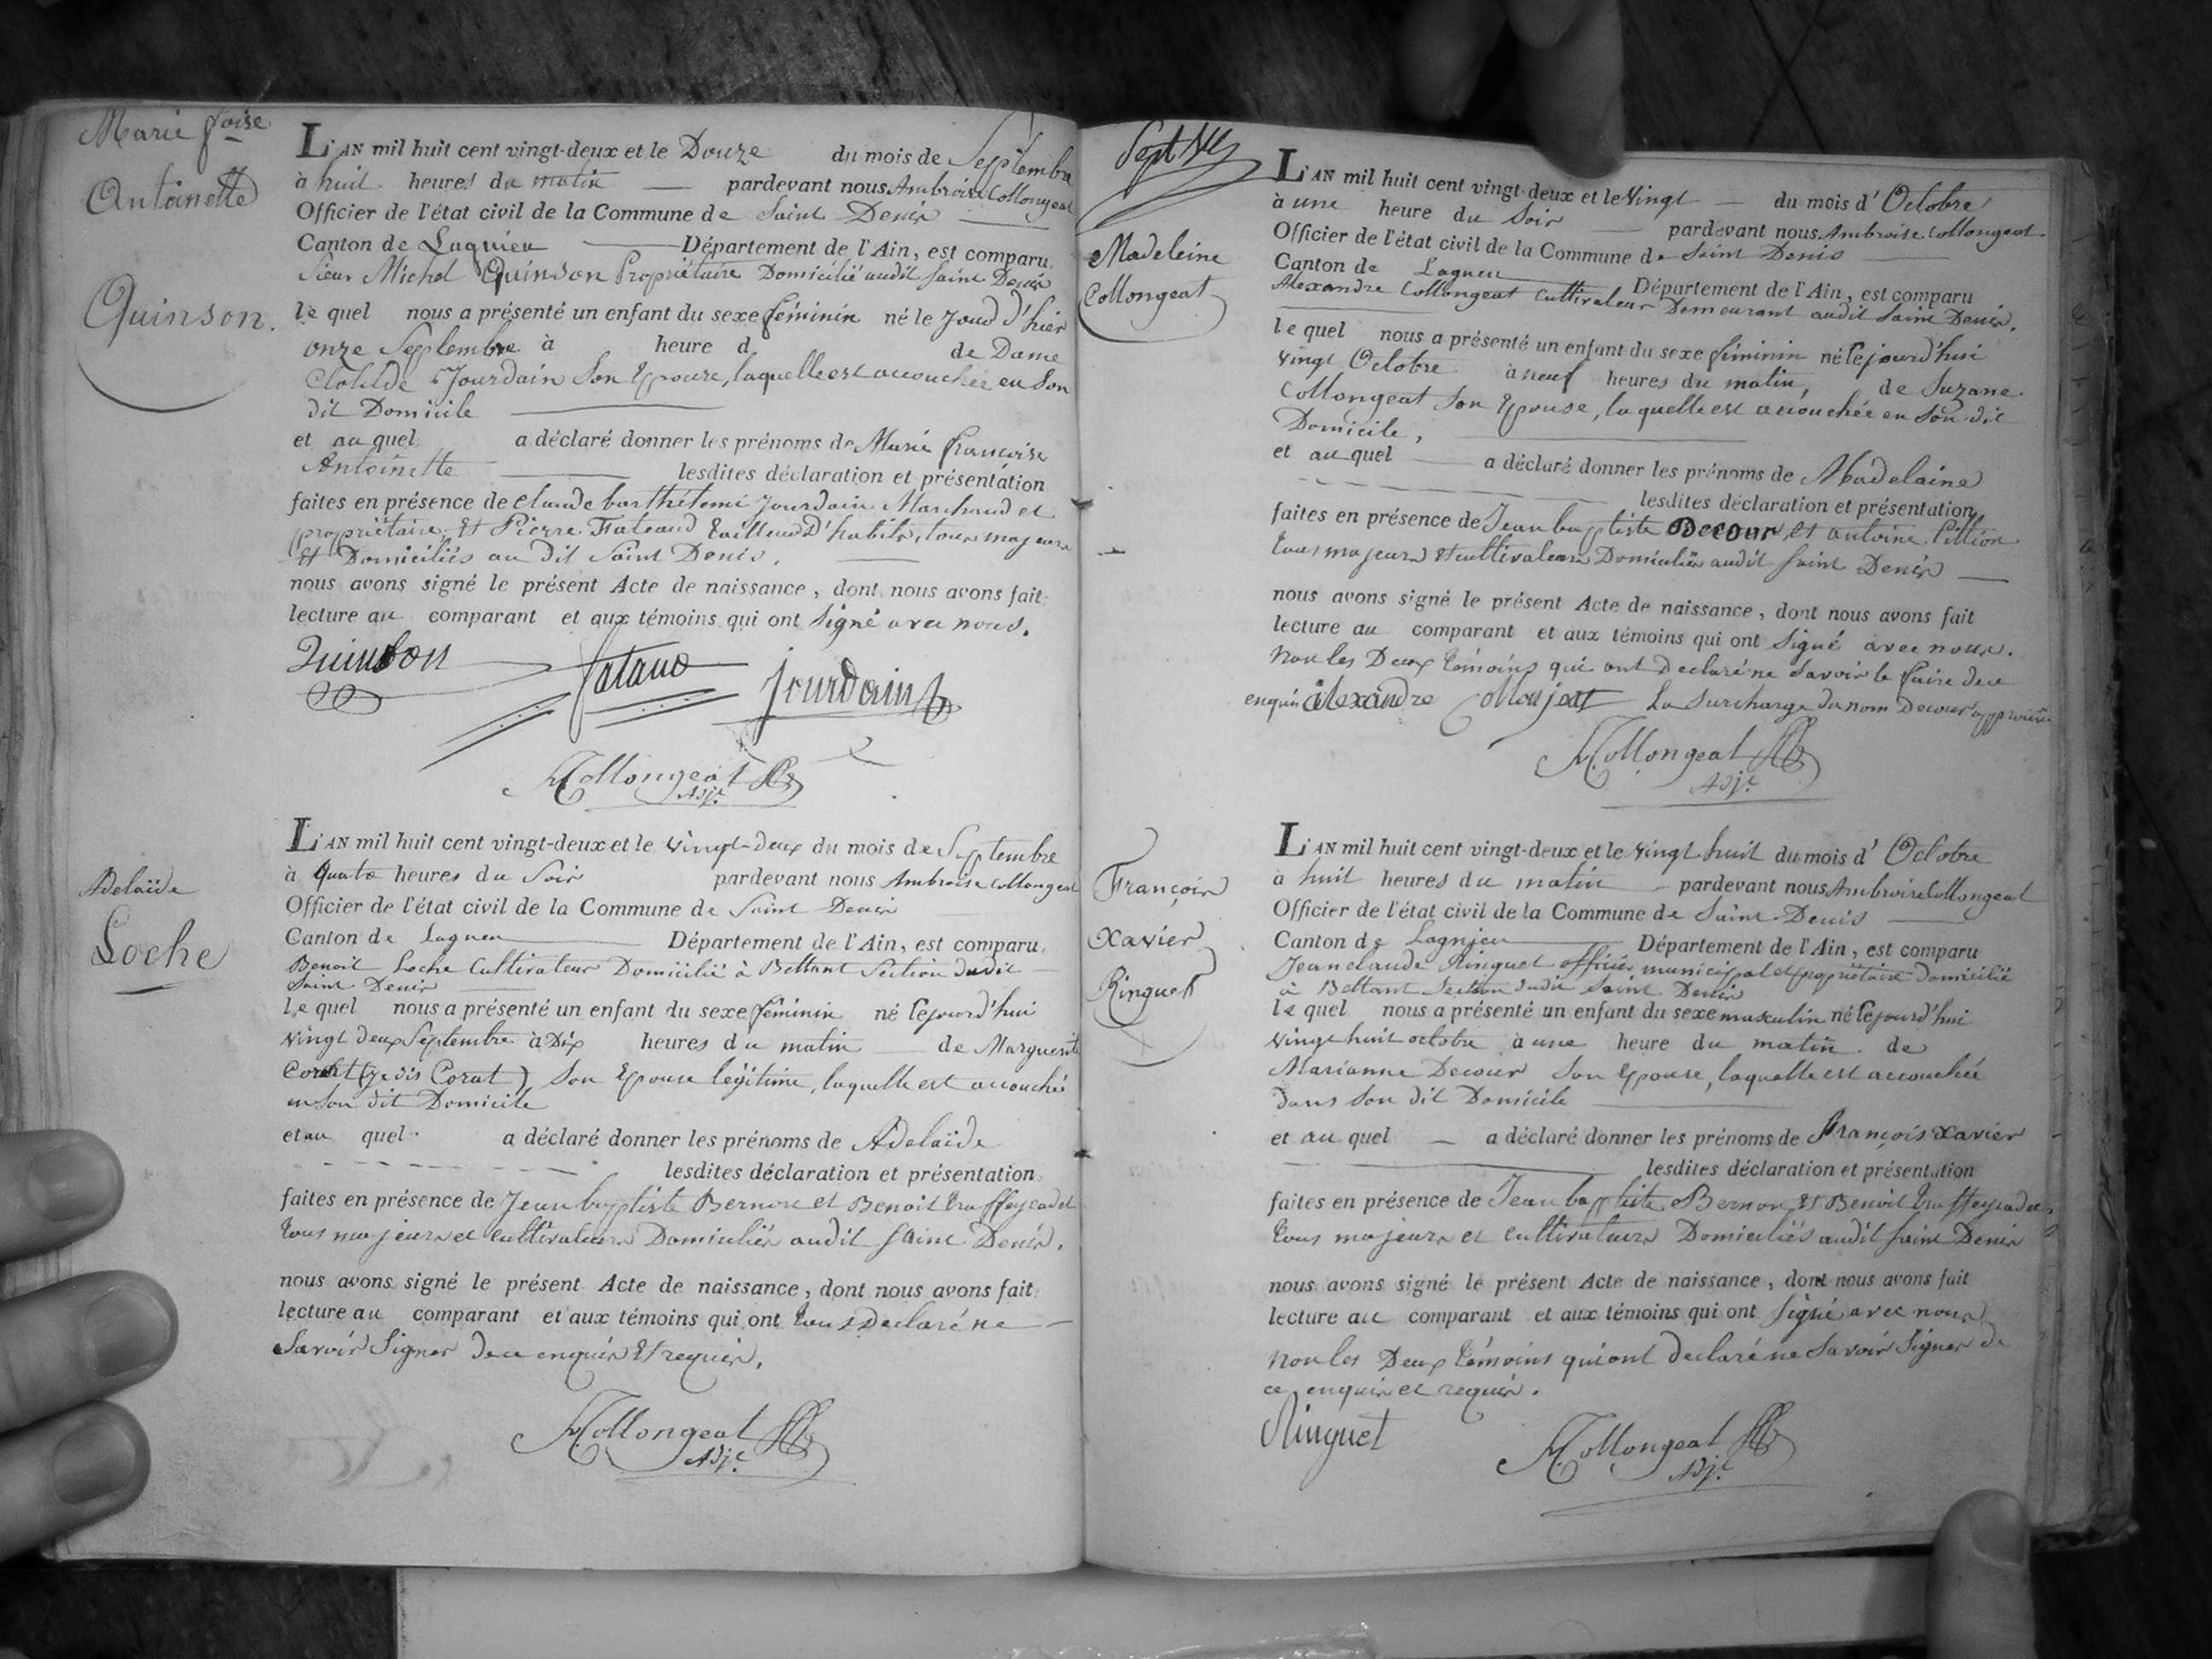 Marie f.oise
Antoinette
Quinson.
L'AN mil huit cent vingt-deux et le Douze du mois de Septembre
à huit heures du matin pardevant nous Ambroise Collongeat
Officier de l'état civil de la Commune de Saint Denis
Canton de Lagnieu Département de l'Ain, est comparu
Sieur Michel Quinson Propriétaire Domicilié audit Saint Denis
le quel nous a présenté un enfant du sexe féminin né le jourd'hier
onze Septembre à heure d de Dame
Clotilde Jourdain Son Epouse, laquelle est accouchée en Son
dit Domicile
et au quel a déclaré donner les prénoms de Marie françoise
Antoinette lesdites déclaration et présentation
faites en présence de Claude barthélemi Jourdain Marchand et
propriétaire, Et Pierre tailleur D'habits, tous majeurs
Et Domiciliés au dit Saint Denis.
nous avons signé le présent Acte de naissance, dont nous avons fait
lecture au comparant et aux témoins qui ont Signé avec nous.
Quinson Jourdain
Collongeat
Adj.t
Adelaïde
Loche
L'AN mil huit cent vingt-deux et le vingt-deux du mois de Septembre
à quatre heures du Soir pardevant nous Ambroise Collongeat
Officier de l'état civil de la Commune de Saint Denis
Canton de Lagneu Département de l'Ain, est comparu
Benoit Loche Cultivateur Domicilié à Bettant Section dudit
Saint Denis
le quel nous a présenté un enfant du sexe féminin né le jourd'hui
vingt deux Septembre à Dix heures du matin de Marguerite
(je dis Corat), Son Epouse légitime, laquelle est accouchée
en Son dit Domicile
et au quel a déclaré donner les prénoms de Adelaïde
lesdites déclaration et présentation
faites en présence de Jean baptiste Bernon et Benoit truffey cadet
tous majeurs et cultivateurs Domiciliés audit Saint Denis.
nous avons signé le présent Acte de naissance, dont nous avons fait
lecture au comparant et aux témoins qui ont tous Declaré ne
Savoir Signer de ce enquis Et requis.
Collongeat
Adj.t
Madeleine
Collongeat
L'AN mil huit cent vingt-deux et le vingt du mois d'Octobre
à une heure du Soir pardevant nous Ambroise Collongeat
Officier de l'état civil de la Commune de Saint Denis
Canton de Lagneu Département de l'Ain, est comparu
Alexandre Collongeat Cultivateur Demeurant audit Saint Denis.
le quel nous a présenté un enfant du sexe féminin né le jourd'hui
vingt Octobre à neuf heures du matin, de Suzane
Collongeat Son Epouse, laquelle est accouchée en Son dit
Domicile,
et au quel a déclaré donner les prénoms de Madelaine
lesdites déclaration et présentation
faites en présence de Jean baptiste Decour, et antoine
tous majeurs et cultivateurs Domiciliés audit Saint Denis
nous avons signé le présent Acte de naissance, dont nous avons fait
lecture au comparant et aux témoins qui ont Signé avec nous.
Non les Deux témoins qui ont declaré ne Savoir le faire de ce
enquis Alexandre Collonjeat La Surcharge du nom Decour approuvée
Collongeat
Adj.t
François
Xavier
Ringuet
L'AN mil huit cent vingt-deux et le vingt huit du mois d'Octobre
à huit heures du matin pardevant nous Ambroise Collongeat
Officier de l'état civil de la Commune de Saint Denis
Canton de Lagnieu Département de l'Ain, est comparu
Jean claude Ringuet officier municipal et propriétaire domicilié
à Bettant Section dudit Saint Denis
le quel nous a présenté un enfant du sexe masculin né le jourd'hui
vingt huit octobre à une heure du matin de
Marianne Decour Son Epouse, laquelle est accouchée
dans Son dit Domicile
et au quel a déclaré donner les prénoms de François Xavier
lesdites déclaration et présentation
faites en présence de Jean baptiste Bernon, Et Benoit truffey cadet
tous majeurs et cultivateurs Domiciliés audit Saint Denis
nous avons signé le présent Acte de naissance, dont nous avons fait
lecture au comparant et aux témoins qui ont Signé avec nous
Non les Deux témoins qui ont declaré ne Savoir Signer de
ce enquis et requis.
Ringuet Collongeat
Adj.t